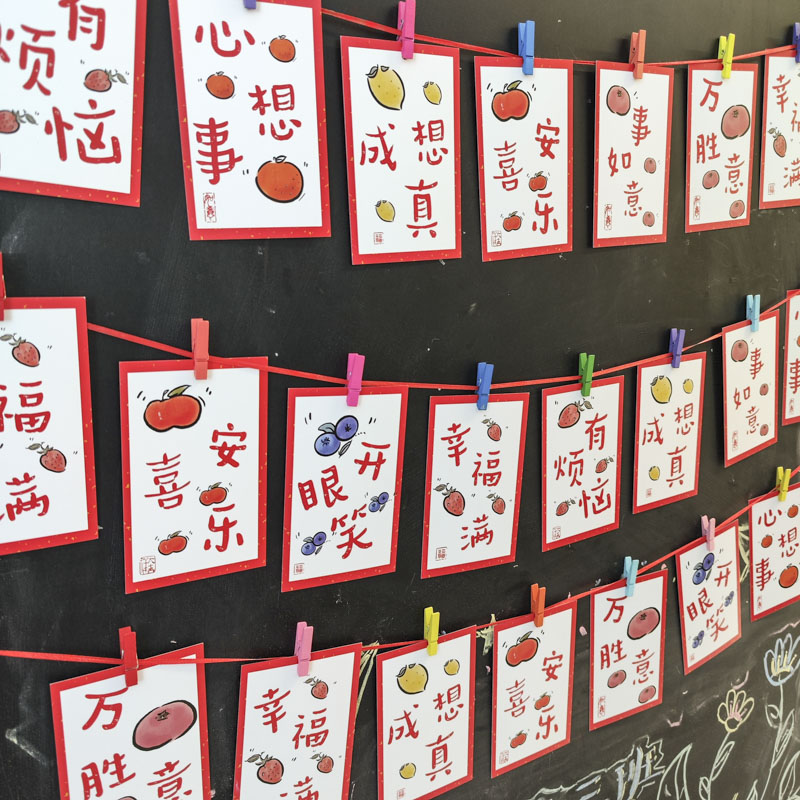 有烦恼
心想事
想成真
安喜乐
事如意
万胜意
幸福满
福满
安喜乐
开眼笑
幸福满
有烦恼
想成真
事如意
事
万胜意
幸福
想成真
安喜乐
万胜意
开眼笑
心想事